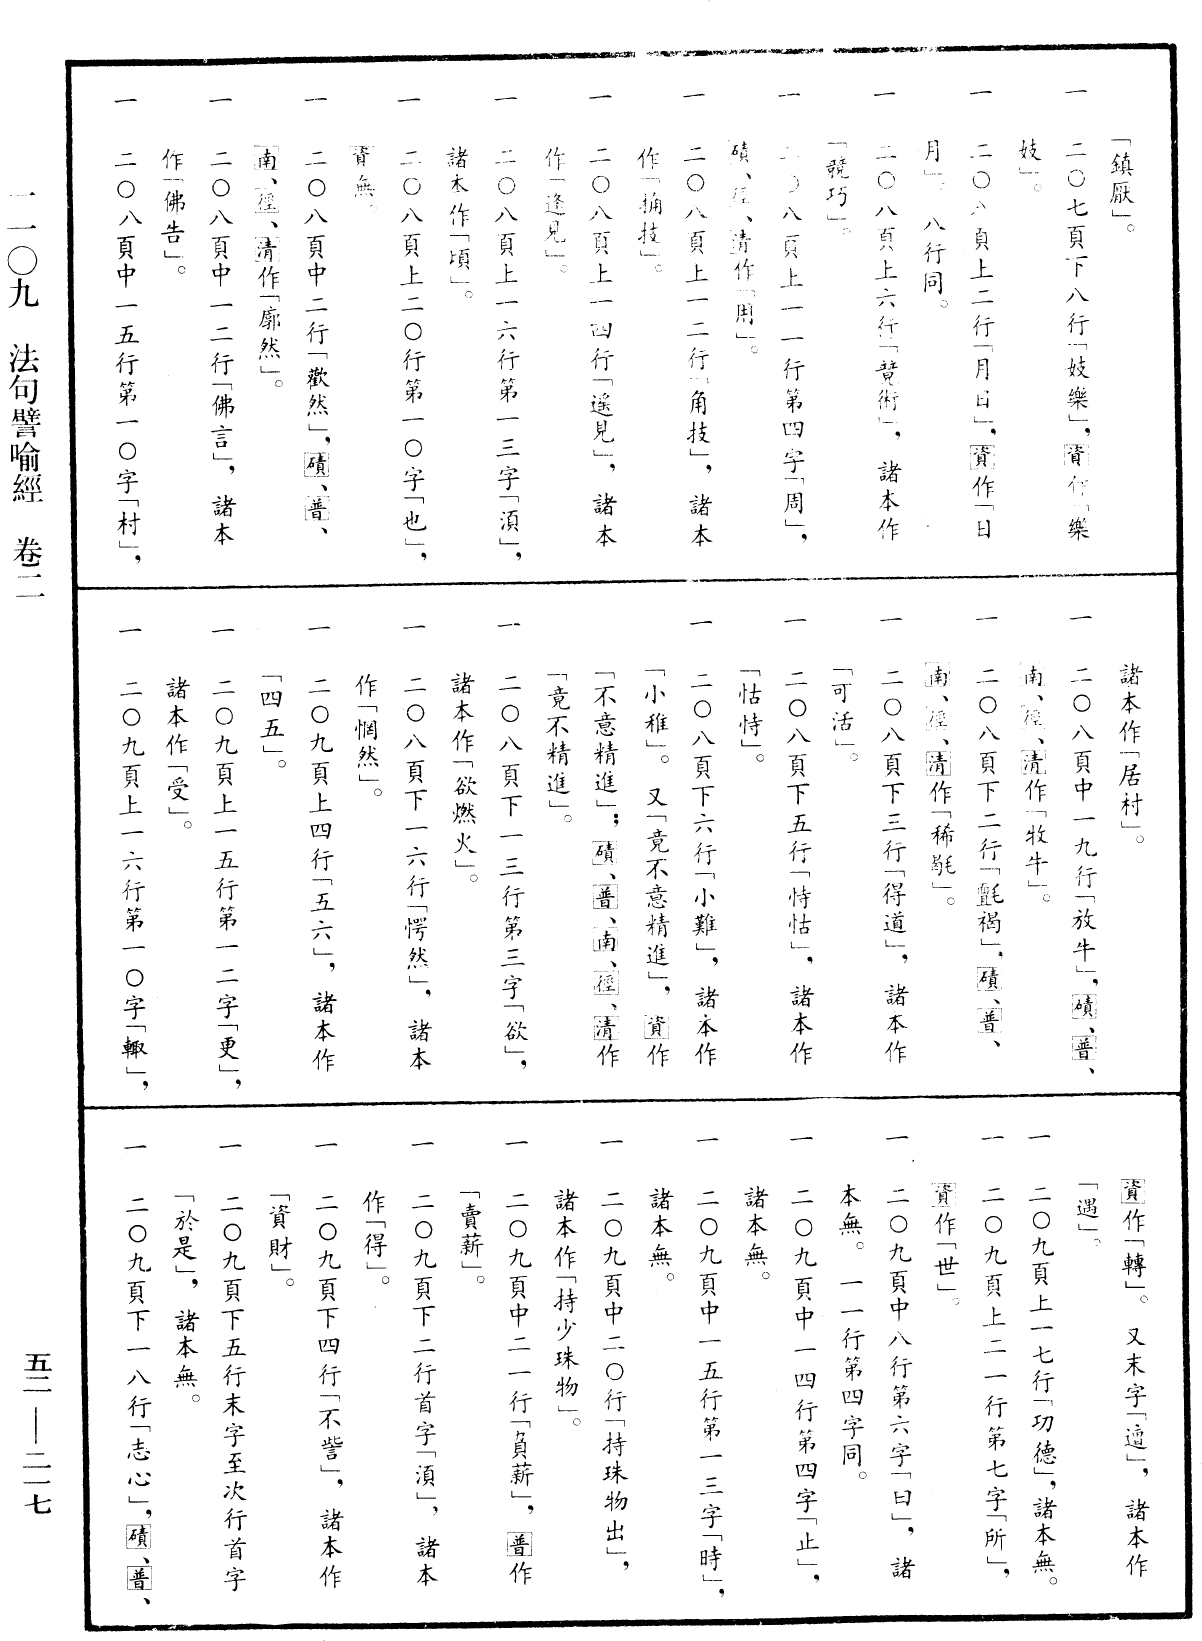 「鎮厭」。
一 二〇七頁下八行「妓樂」，資作「樂
妓」。
一 二〇八頁上二行「月日」，資作「日
月」。八行同。
一 二〇八頁上六行「競術」，諸本作
「競巧」。
一 二〇八頁上一一行第四字「周」，
磧、徑、清作「用」。
一 二〇八頁上一二行「角技」，諸本
作「捔技」。
一 二〇八頁上一四行「遙見」，諸本
作「逢見」。
一 二〇八頁上一六行第一三字「須」，
諸本作「頃」。
一 二〇八頁上二〇行第一〇字「也」，
資無。
一 二〇八頁中二行「歡然」，磧、普、
南、徑、清作「廓然」。
一 二〇八頁中一二行「佛言」，諸本
作「佛告」。
一 二〇八頁中一五行第一〇字「村」，
諸本作「居村」。
一 二〇八頁中一九行「放牛」，磧、普、
南、徑、清作「牧牛」。
一 二〇八頁下二行「㲲褐」，磧、普、
南、徑、清作「稀毼」。
一 二〇八頁下三行「得道」，諸本作
「可活」。
一 二〇八頁下五行「恃怙」，諸本作
「怙恃」。
一 二〇八頁下六行「小難」，諸本作
「小稚」。又「竟不意精進」，資作
「不意精進」；磧、普、南、徑、清作
「竟不精進」。
一 二〇八頁下一三行第三字「欲」，
諸本作「欲燃火」。
一 二〇八頁下一六行「愕然」，諸本
作「惘然」。
一 二〇九頁上四行「五六」，諸本作
「四五」。
一 二〇九頁上一五行第一二字「更」，
諸本作「受」。
一 二〇九頁上一六行第一〇字「輙」，
資作「轉」。又末字「邅」，諸本作
「遇」。
一 二〇九頁上一七行「功德」，諸本無。
一 二〇九頁上二一行第七字「所」，
資作「世」。
一 二〇九頁中八行第六字「曰」，諸
本無。一一行第四字同。
一 二〇九頁中一四行第四字「止」，
諸本無。
一 二〇九頁中一五行第一三字「時」，
諸本無。
一 二〇九頁中二〇行「持珠物出」，
諸本作「持少珠物」。
一 二〇九頁中二一行「負薪」，普作
「賣薪」。
一 二〇九頁下二行首字「須」，諸本
作「得」。
一 二〇九頁下四行「不訾」，諸本作
「資財」。
一 二〇九頁下五行末字至次行首字
「於是」，諸本無。
一 二〇九頁下一八行「志心」，磧、普、
一一〇九 法句譬喻經 卷二
五二——二一七